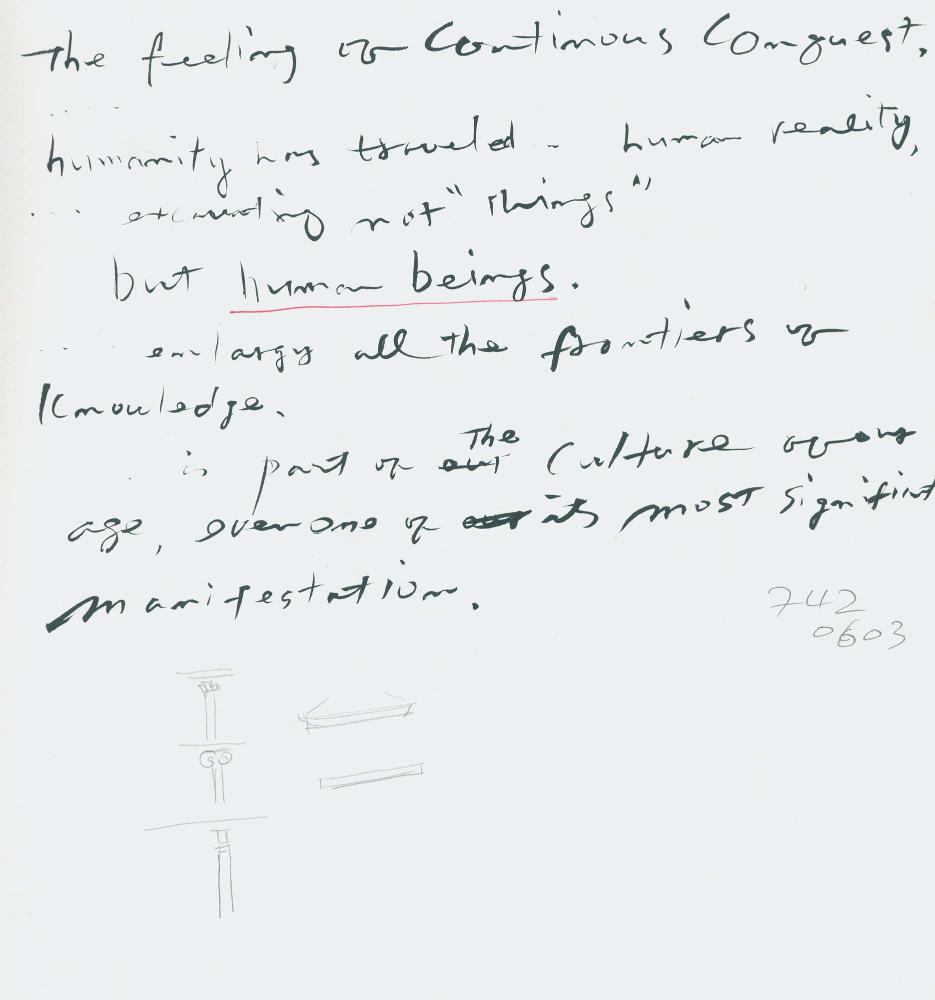 The feeling of Continous Conquest.
humanity has traveled - human reality,
... not "things"
but human beings.
... enlargy all the frontiers of
Knowledge.
is part of the Culture of our
age, even one of its most significant
manifestation.
742
0603